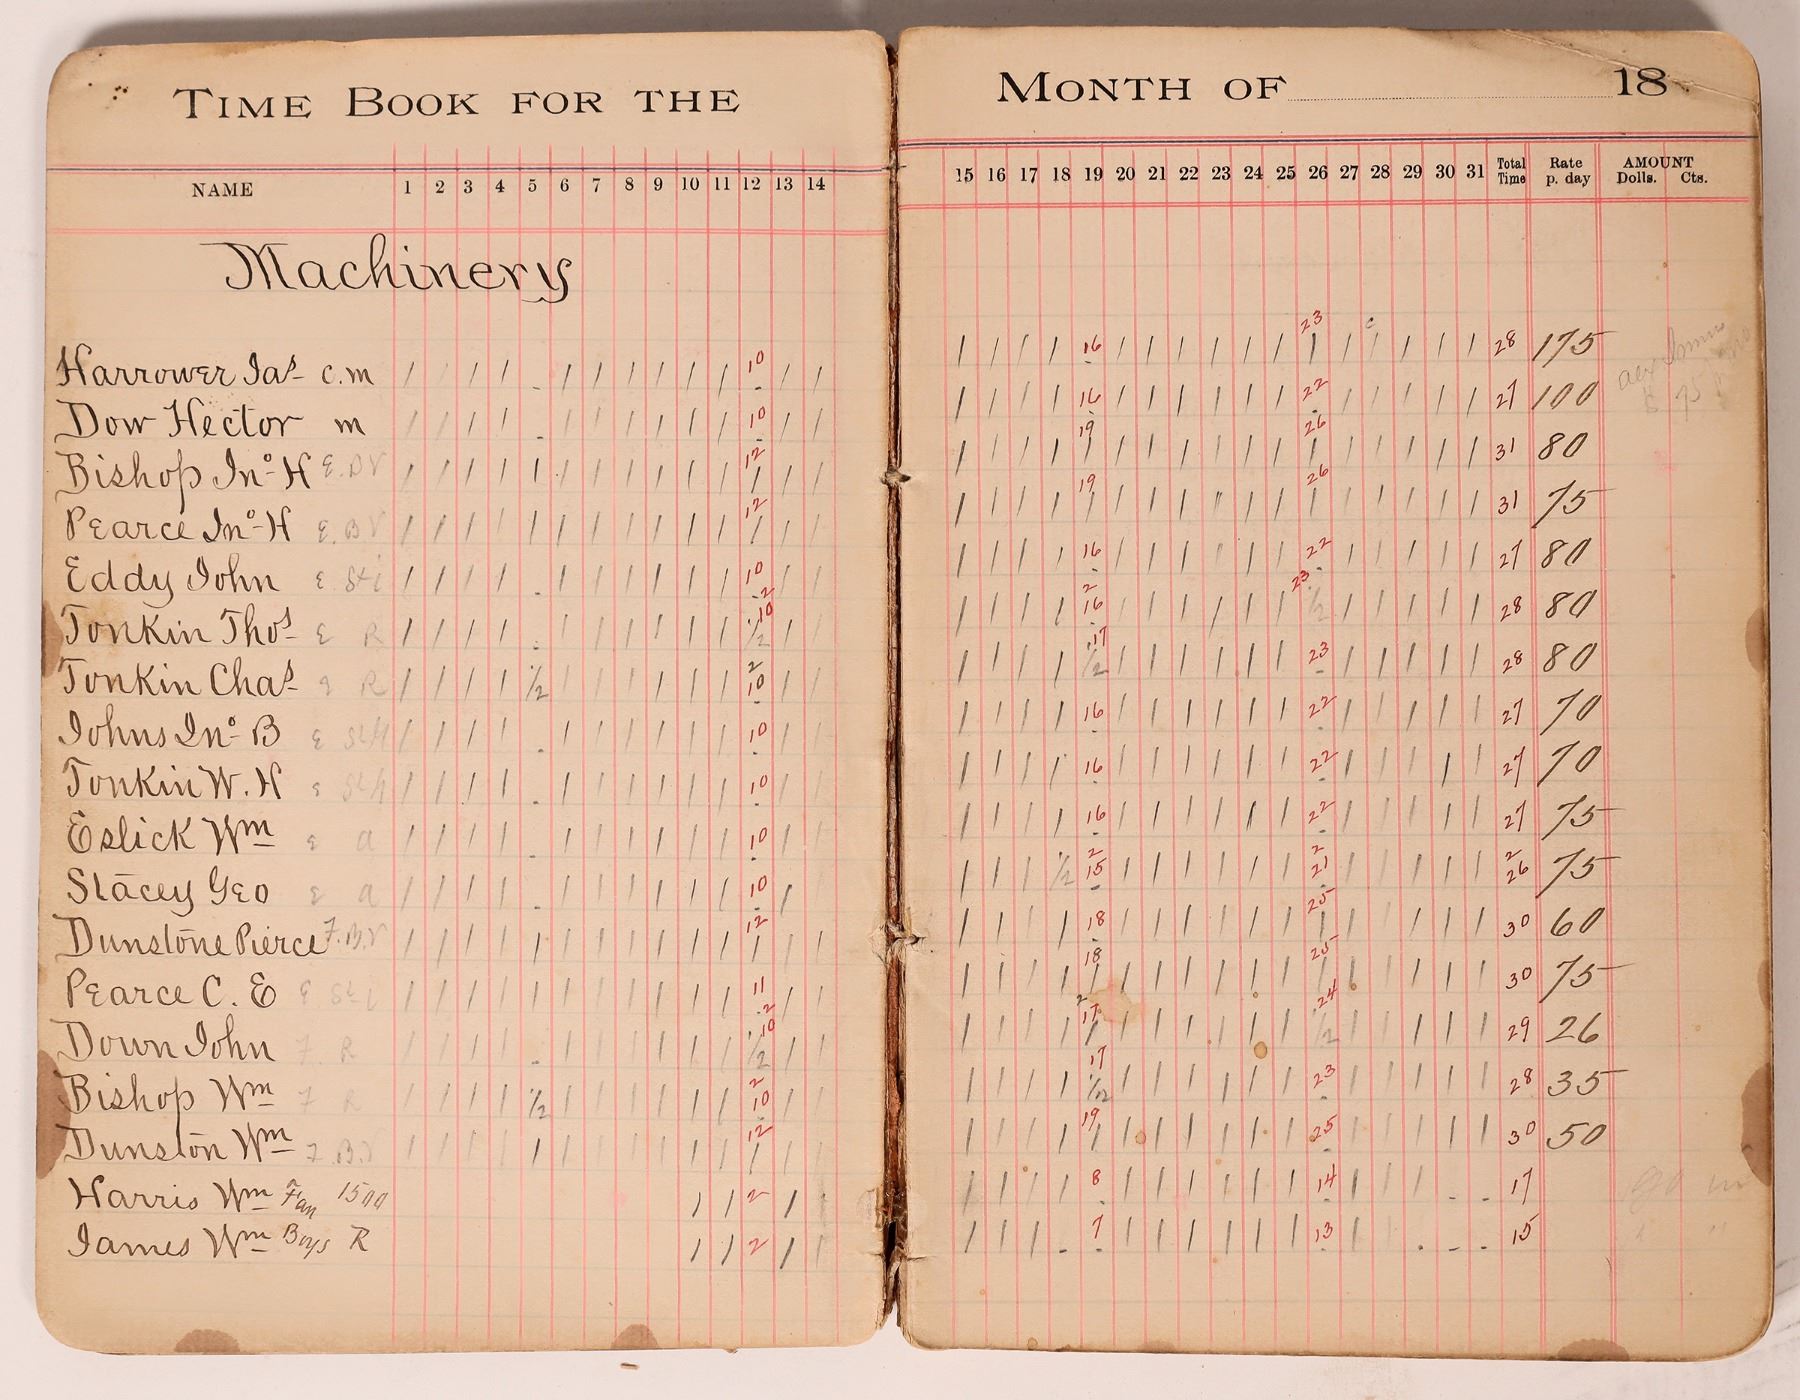 TIME BOOK FOR THE
MONTH OF 18
NAME 1 2 3 4 5 6 7 8 9 10 11 12 13 14
15 16 17 18 19 20 21 22 23 24 25 26 27 28 29 30 31 Total Time Rate p. day AMOUNT Dolls. Cts.
Machinery
Harrower Jas. c.m 10 16 23 28 175
Dow Hector m 10 16 22 27 100
Bishop Jno. H E. B V 12 19 26 31 80
Pearce Jno. H E. B V 12 19 26 31 75
Eddy John E Sti 10 16 22 27 80
Tonkin Thos E R 2 10 1/2 2 16 23 1/2 28 80
Tonkin Chas E R 1/2 2 10 17 1/2 23 28 80
Johns Jno. B E 10 16 22 27 70
Tonkin W. H E 10 16 22 27 70
Eslick Wm E a 10 16 22 27 75
Stacey Geo E a 10 1/2 2 15 2 21 2 26 75
Dunstone Pierce F. B. V 12 18 25 30 60
Pearce C. E E Sti 11 18 25 30 75
Down John F. R 2 10 1/2 2 17 24 1/2 29 26
Bishop Wm F R 1/2 2 10 17 1/2 23 28 35
Dunston Wm F. B. V 12 19 25 30 50
Harris Wm Fan 1500 2 8 14 17
James Wm Boys R 2 7 13 15